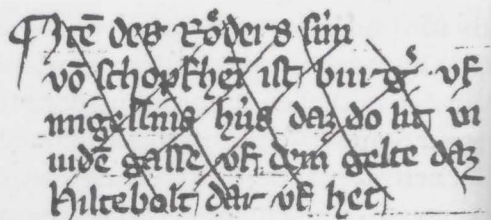 Itē des Rͦders sun
vō schopfhē ist burgͤ vf
ingellnis hus daz do lit in
iudē gasse vf dem gelte daz
hiltebolt dar vf het